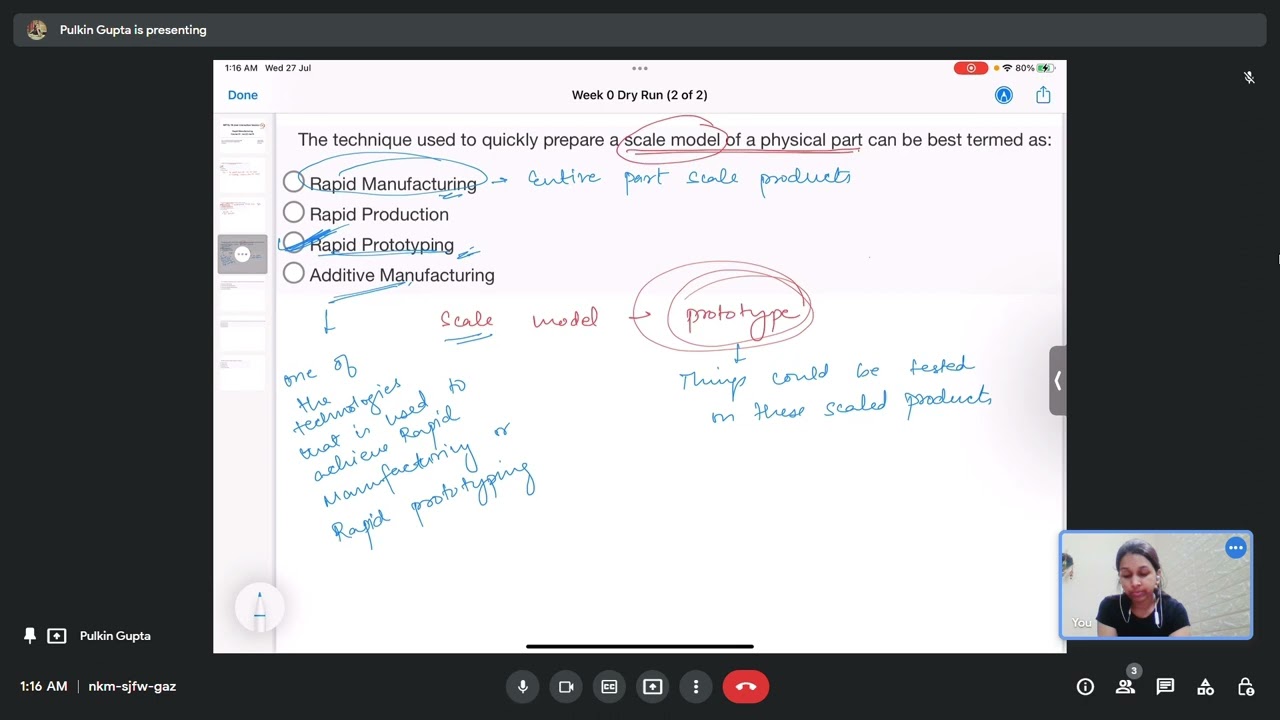 Pulkin Gupta is presenting
1:16 AM Wed 27 Jul
80%
Done
Week 0 Dry Run (2 of 2)
The technique used to quickly prepare a scale model of a physical part can be best termed as:
Rapid Manufacturing → Entire part scale products
Rapid Production
Rapid Prototyping
Additive Manufacturing
Scale model → prototype
one of
the
technologies
that is used to
achieve Rapid
Manufacturing or
Rapid prototyping
Things could be tested
on these scaled products
You
Pulkin Gupta
1:16 AM | nkm-sjfw-gaz
3